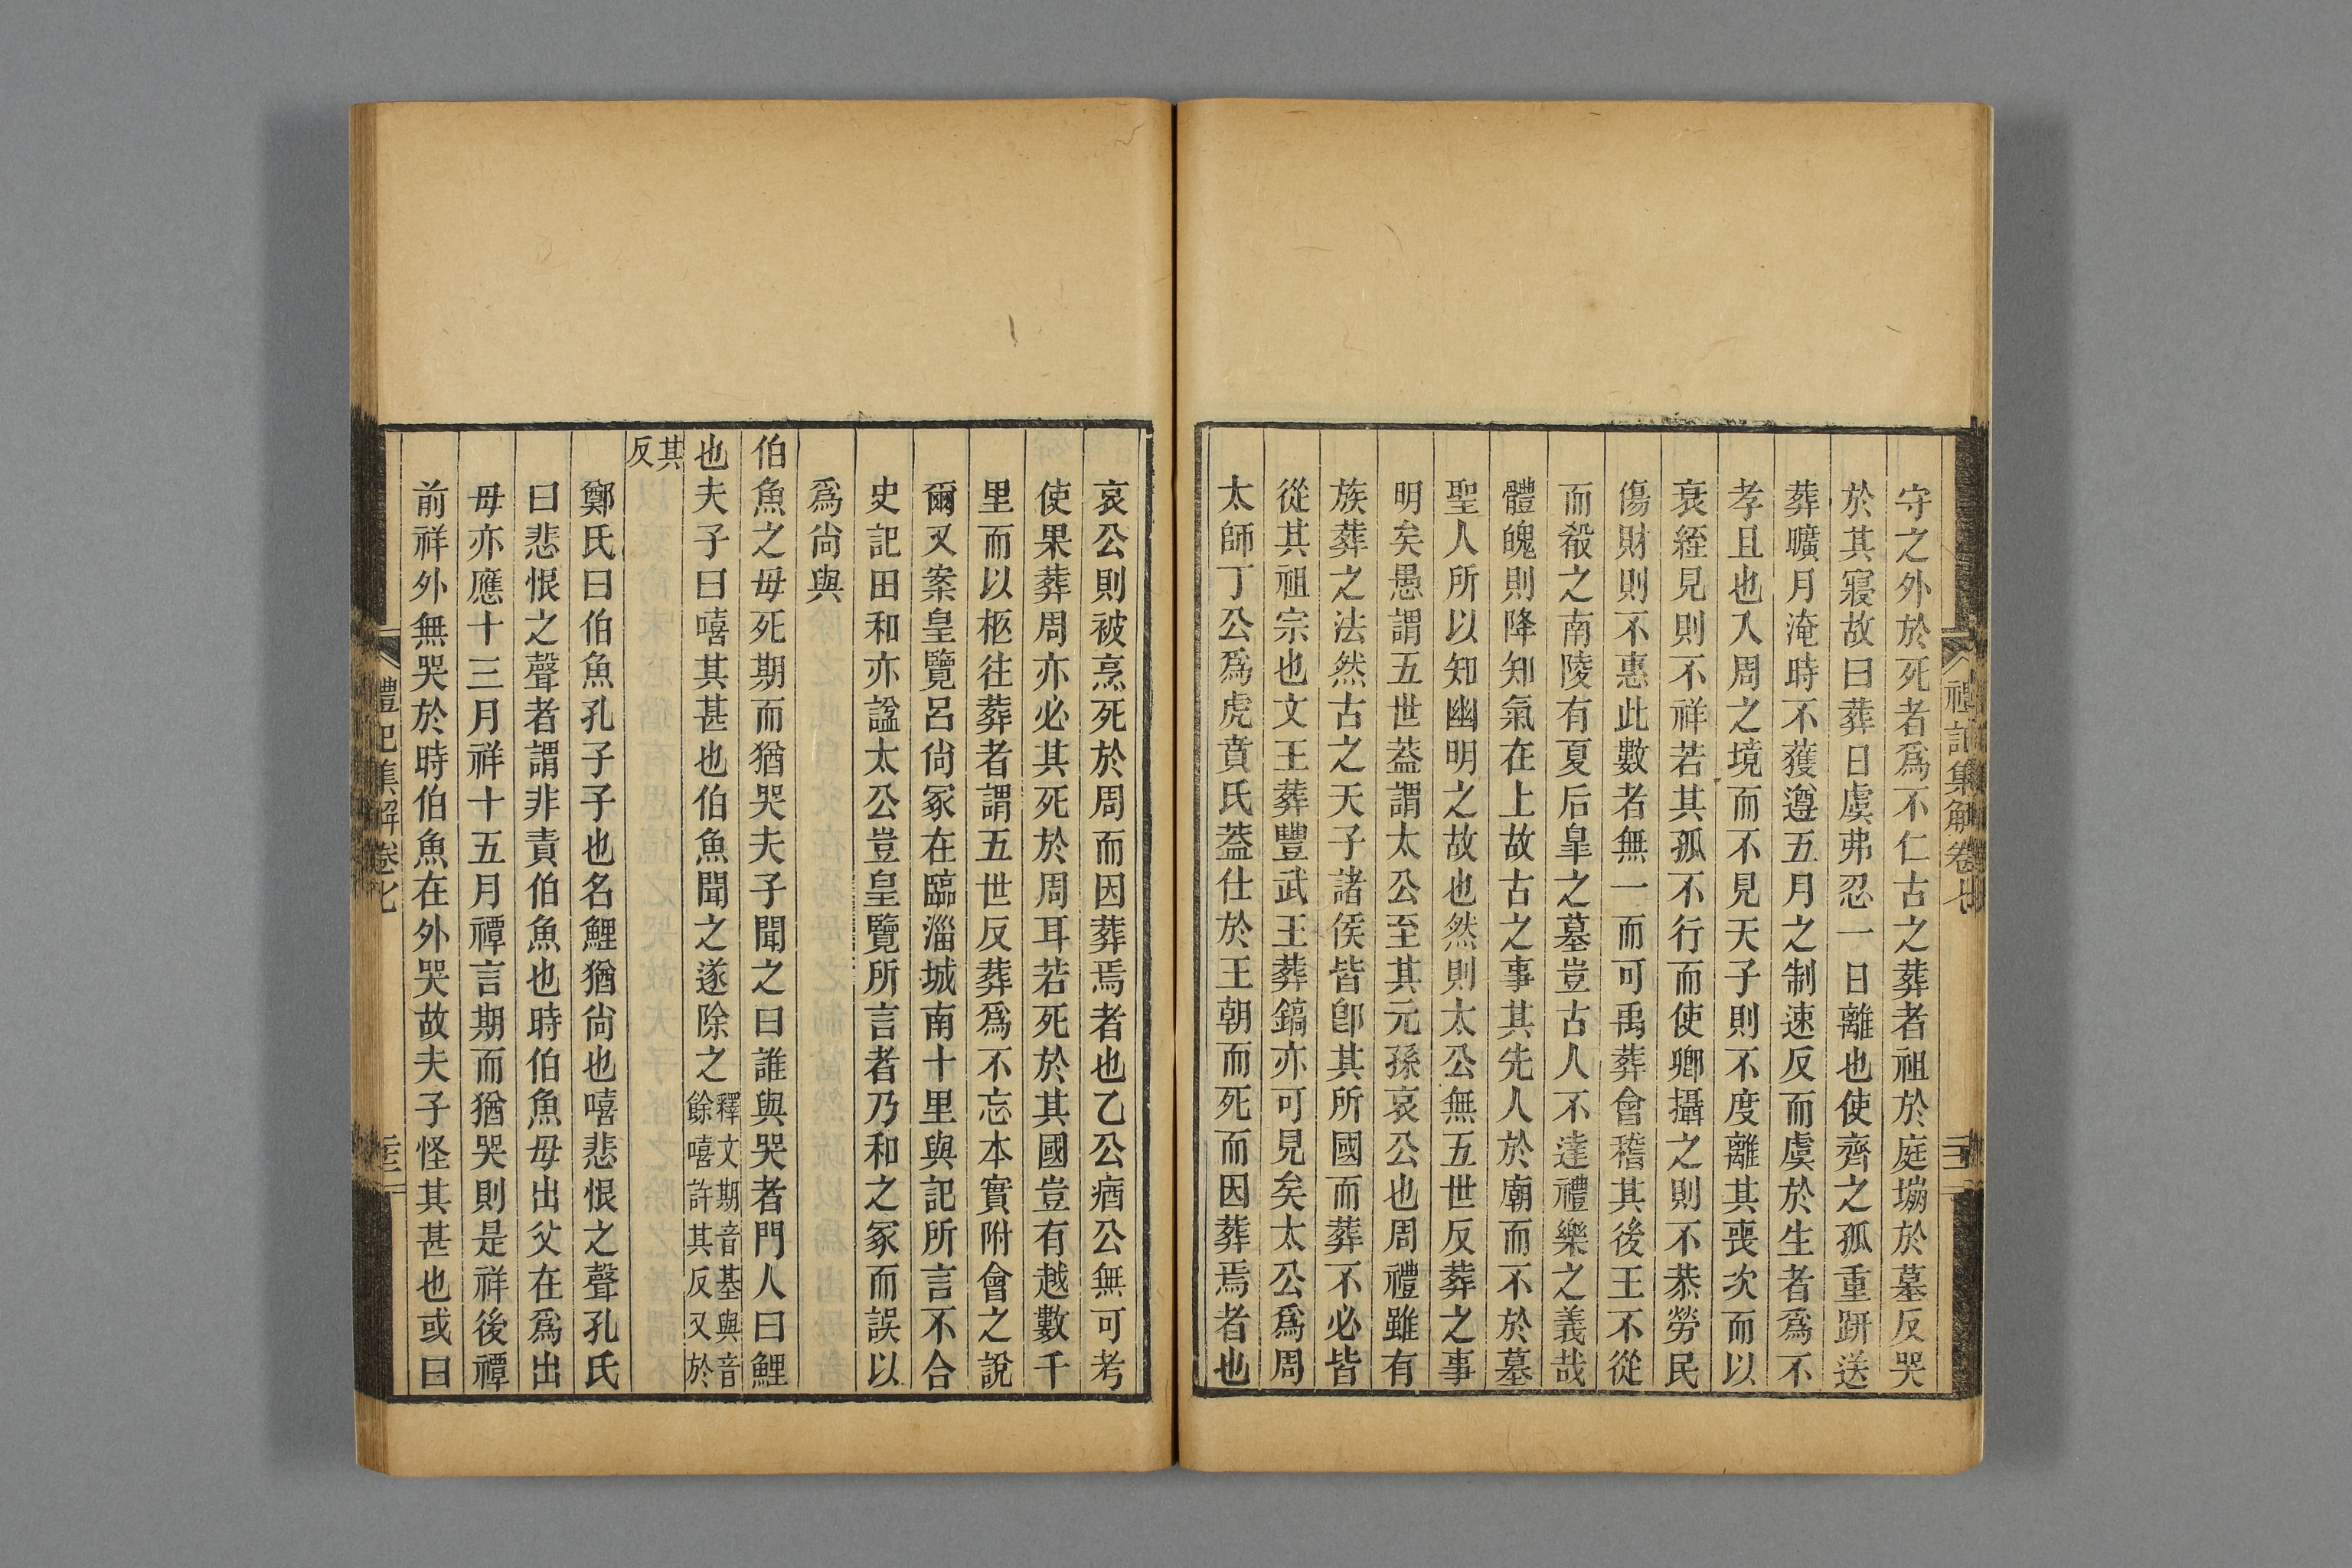 禮記集解卷七
守之外於死者爲不仁古之葬者祖於庭塴於墓反哭
於其寢故曰葬日虞弗忍一日離也使齊之孤重趼送
葬曠月淹時不獲遵五月之制速反而虞於生者爲不
孝且也入周之境而不見天子則不度離其喪次而以
衰絰見則不祥若其孤不行而使卿攝之則不恭勞民
傷財則不惠此數者無一而可禹葬會稽其後王不從
而殽之南陵有夏后皐之墓豈古人不達禮樂之義哉
體魄則降知氣在上故古之事其先人於廟而不於墓
聖人所以知幽明之故也然則太公無五世反葬之事
明矣愚謂五世葢謂太公至其元孫哀公也周禮雖有
族葬之法然古之天子諸侯皆卽其所國而葬不必皆
從其祖宗也文王葬豐武王葬鎬亦可見矣太公爲周
太師丁公爲虎賁氏葢仕於王朝而死而因葬焉者也
哀公則被烹死於周而因葬焉者也乙公㾖公無可考
使果葬周亦必其死於周耳若死於其國豈有越數千
里而以柩往葬者謂五世反葬爲不忘本實附會之說
爾又案皇覽呂尙冢在臨淄城南十里與記所言不合
史記田和亦諡太公豈皇覽所言者乃和之冢而誤以
爲尙與
伯魚之母死期而猶哭夫子聞之曰誰與哭者門人曰鯉
也夫子曰嘻其甚也伯魚聞之遂除之釋文期音基與音餘嘻許其反又於
其反
鄭氏曰伯魚孔子子也名鯉猶尙也嘻悲恨之聲孔氏
曰悲恨之聲者謂非責伯魚也時伯魚母出父在爲出
母亦應十三月祥十五月禫言期而猶哭則是祥後禫
前祥外無哭於時伯魚在外哭故夫子怪其甚也或曰
禮記集解卷七